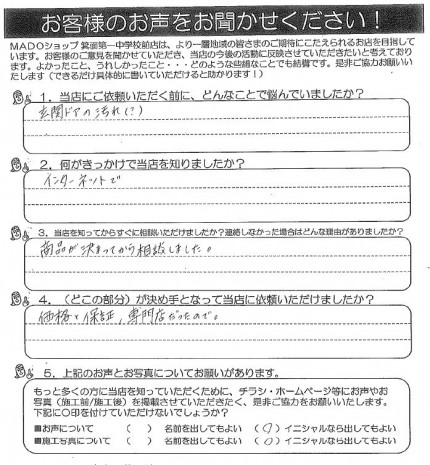 お客様のお声をお聞かせください！
MADOショップ 箕面第一中学校前店は、より一層地域の皆さまのご期待にこたえられるお店を目指して
います。お客様のご意見を聞かせていただき、当店の今後の活動に反映させていただきたいと考えており
ます。よかったこと、うれしかったこと・・・どのような些細なことでも結構です。是非ご協力お願いい
たします（できるだけ具体的に書いていただけると助かります！）
１．当店にご依頼いただく前に、どんなことで悩んでいましたか？
玄関ドアの汚れ(?)
２．何がきっかけで当店を知りましたか？
インターネットで
３．当店を知ってからすぐに相談いただけましたか？連絡しなかった場合はどんな理由がありましたか？
商品が決まってから相談しました。
４．（どこの部分）が決め手となって当店に依頼いただけましたか？
価格と保証，専門店だったので。
５．上記のお声とお写真についてお願いがあります。
もっと多くの方に当店を知っていただくために、チラシ・ホームページ等にお声やお
写真（施工前/施工後）を掲載させていただきたく、是非ご協力をお願いいたします。
下記に○印を付けていただけないでしょうか？
■お声について （ ） 名前を出してもよい （○）イニシャルなら出してもよい
■施工写真について （ ） 名前を出してもよい （○）イニシャルなら出してもよい